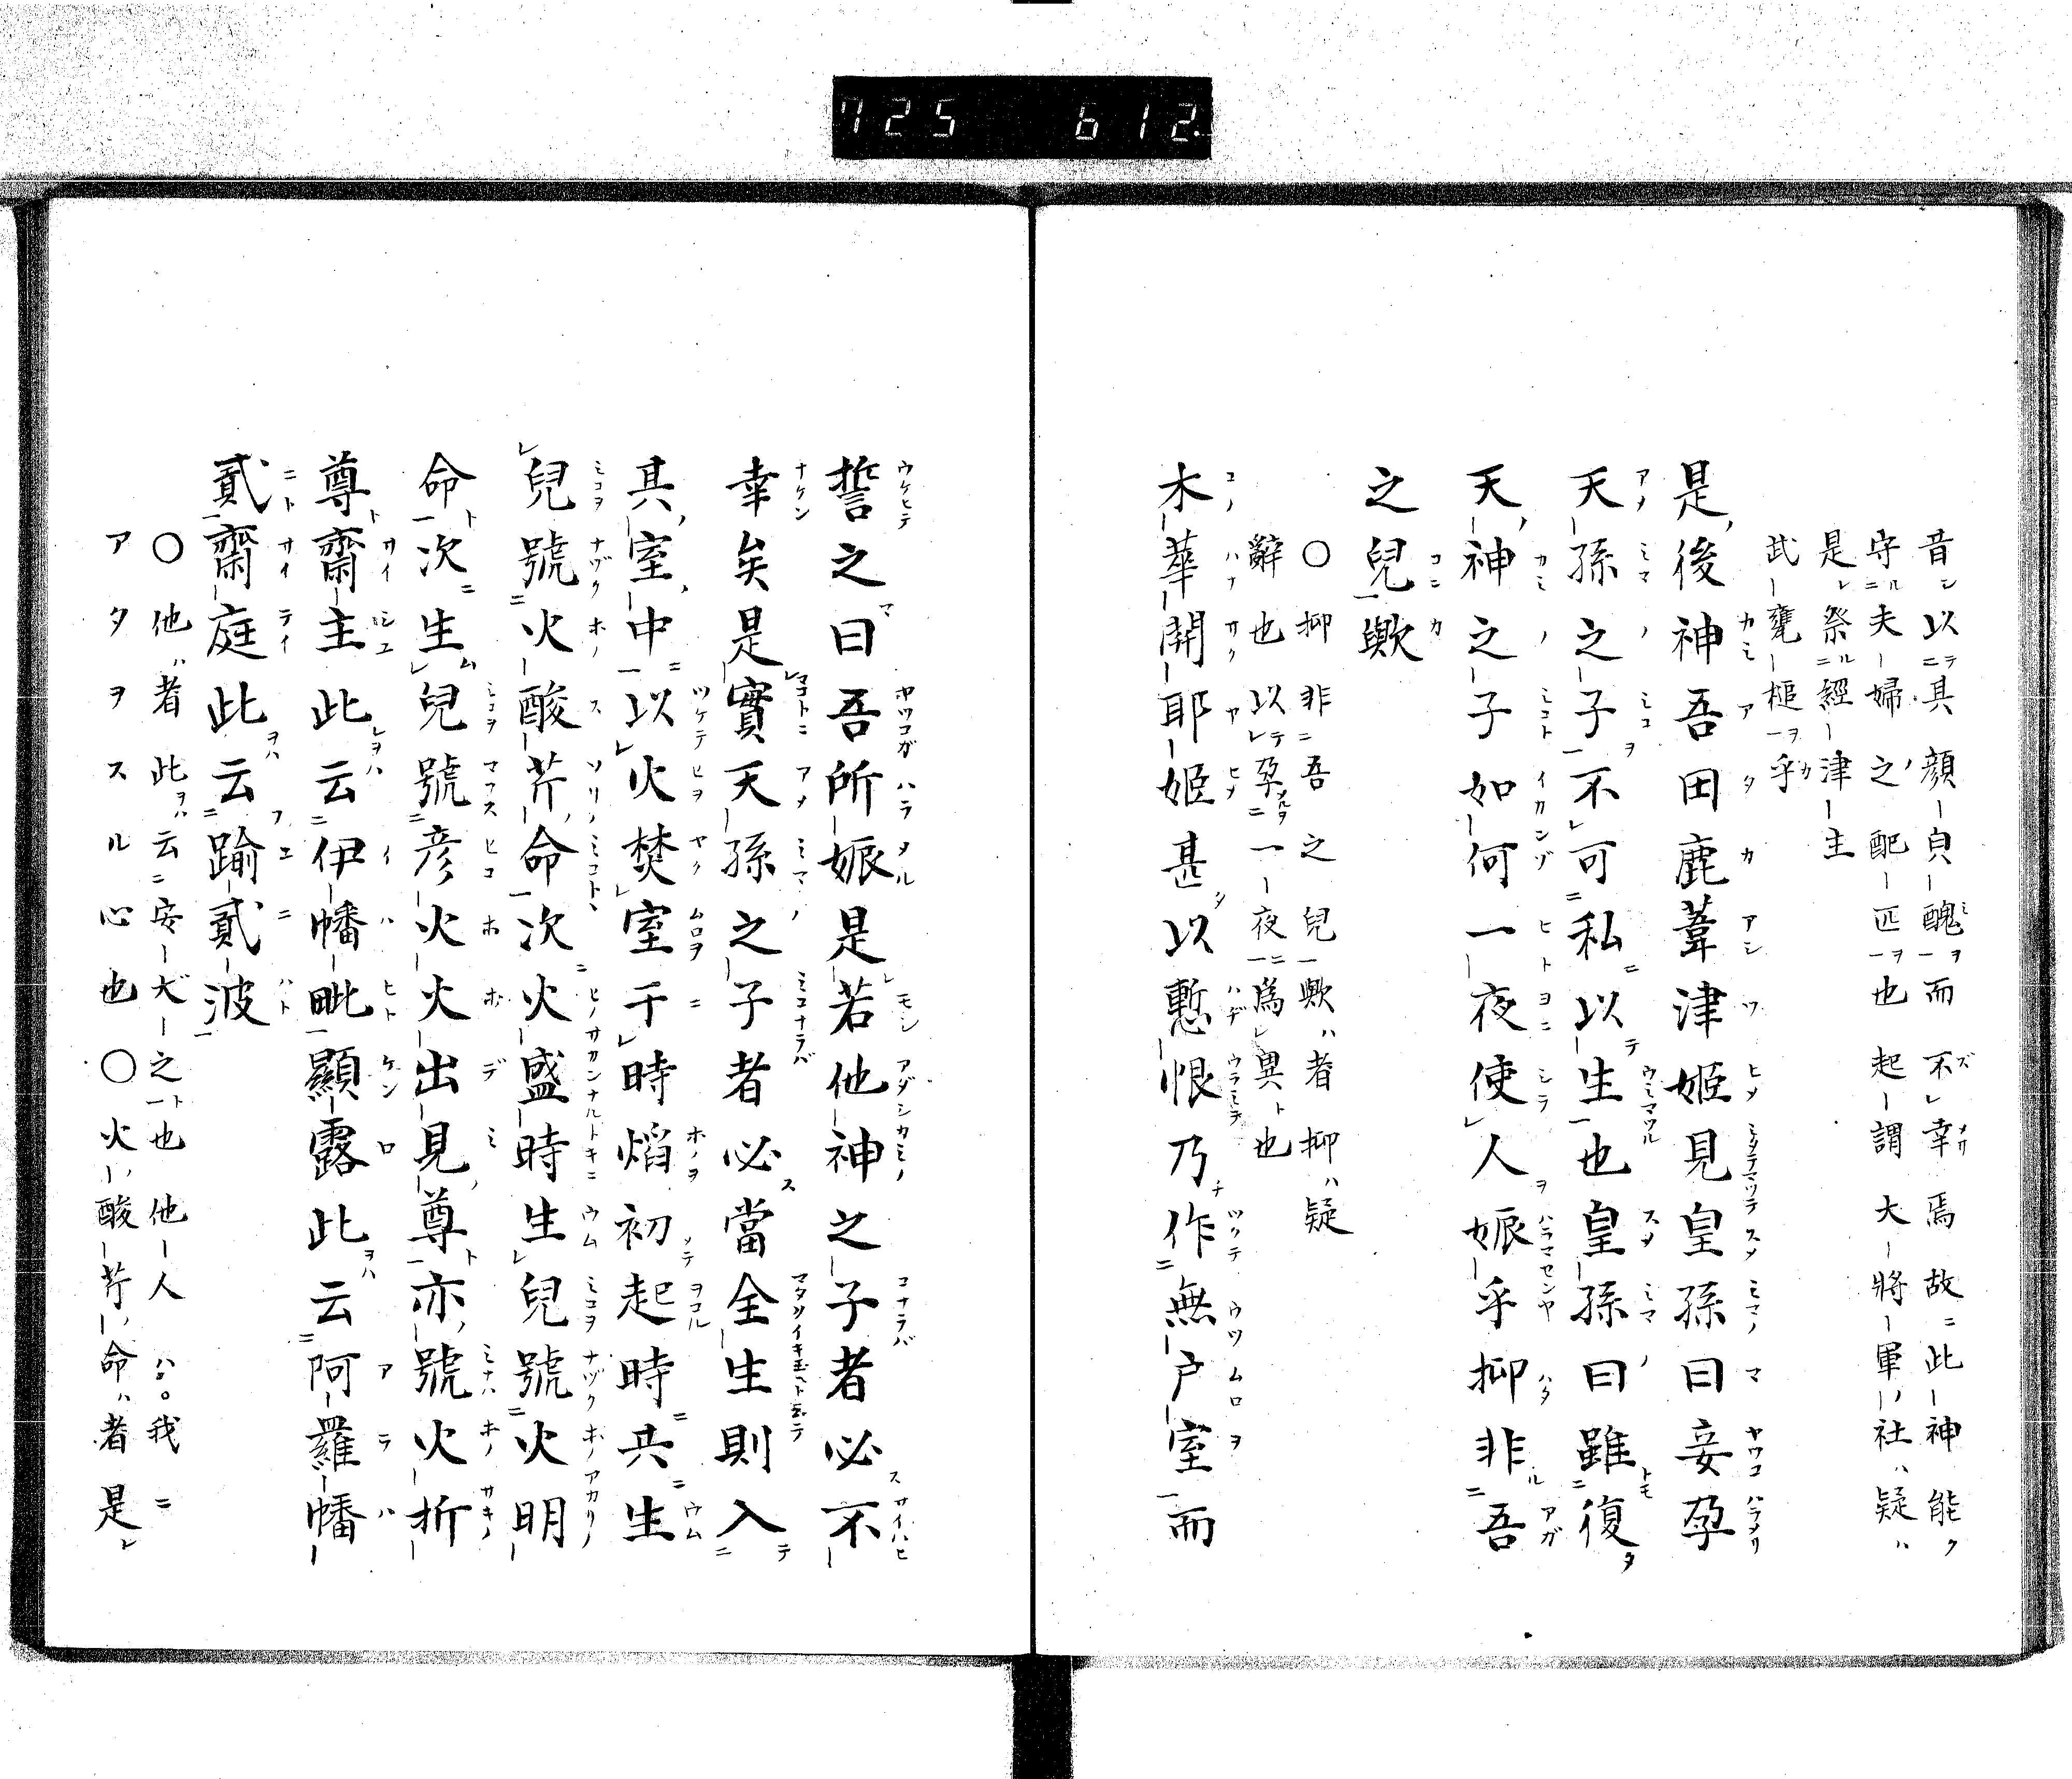 725 612
昔以其顔皃醜而不幸焉故此神能
守夫婦之配匹也起謂大將軍社疑
是祭經津主
武甕槌乎
是後神吾田鹿葦津姬見皇孫曰妾孕
天孫之子不可私以生也皇孫曰雖復
天神之子如何一夜使人娠乎抑非吾
之兒歟
〇抑非吾之兒歟者抑疑
辭也以孕一夜為異也
木華開耶姬甚以慙恨乃作無戶室而
誓之曰吾所娠是若他神之子者必不
幸矣是實天孫之子者必當全生則入
其室中以火焚室于時焰初起時共生
兒號火酸芹命次火盛時生兒號火明
命次生兒號彦火火出見尊亦號火折
尊齋主此云伊幡毗顯露此云阿羅幡
貳齋庭此云踰貳波
〇他者此云安太之也他人ハ我ニ
アタヲスル心也〇火酸芹命者是